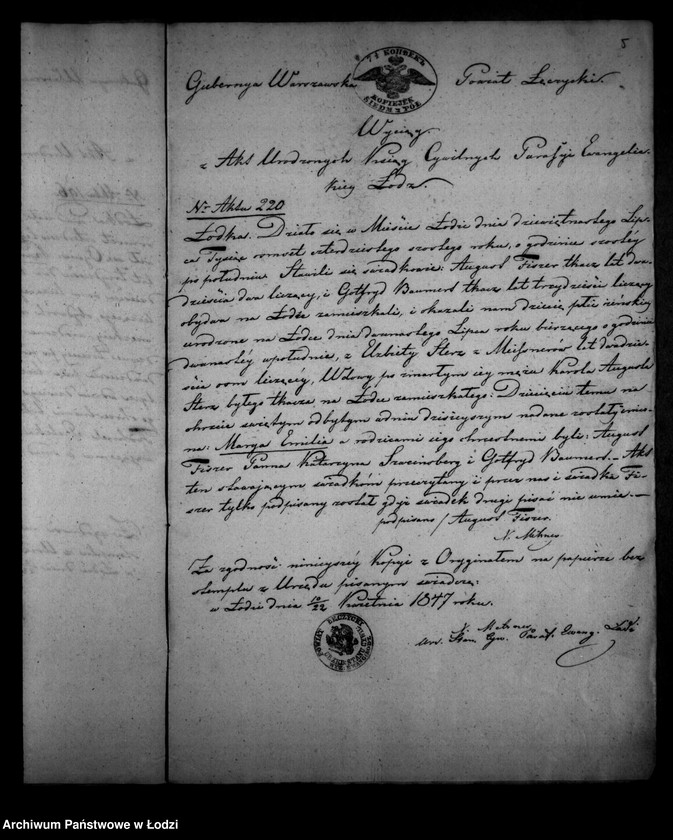 5
7½ КОПѢЕКЪ
KOPIEJEK SIEDM I PÓŁ
Gubernya Warszawska Powiat Łęczycki.
Wyciąg
z Akt Urodzonych Ksiąg Cywilnych Parafyi Evangelic-
kiey Łodz.
Nr Aktu 220
Łodka. Działo się w Mieście Łodzi dnia dziewiętnastego Lip-
ca Tysiąc osmset czterdziestego szostego roku, o godzinie szostéy
po południu Stawili się świadkowie: August Fiszer tkacz lat dwa-
dzieścia dwa liczący, i Gotfryd Baumert tkacz lat trzydzieści liczący
obydwa na Łodce zamieszkali, i okazali nam dziecię płci żeńskiey
urodzone na Łodce dnia dwunastego Lipca roku bieżącego o godzinie
dwunastéy w południe, z Elzbiety Sterz z Meissnerów lat dwadzie-
ścia osm liczącéy, Wdowy po zmarłym iéy mężu Karolu Auguście
Sterz, byłego tkacza na Łodce zamieszkałego: Dziecięciu temu na
chrzcie świętym odbytym w dniu dzisieyszym nadane zostały imio-
na: Marya Emilia a rodzicami iégo chrzestnemi byli, August
Fiszer Panna Katarzyna i Gotfryd Baumert. – Akt
ten stawaiącym świadkóm przeczytany i przez nas i świadka Fi-
szer tylko podpisany został gdyż świadek drugi pisać nie umie. –
podpisano / August Fiszer.
Za zgodność ninieyszéy Kopyi z Oryginałem na papierze bez
stempla z Urzędu pisanym świadczę:
w Łodzi dnia 10/22 Kwietnia 1847 roku.
Urz. Stanu Cyw. Paraf. Ewang. Łodzi
POWIAT ŁĘCZYCKI
Archiwum Państwowe w Łodzi